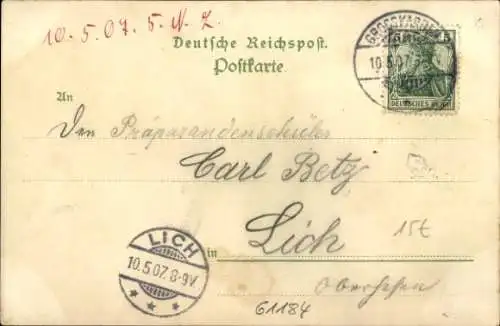 10.5.07. 5. N. Z.
Deutsche Reichspost.
Postkarte
An
GROSSKARBEN
10.5.07. 7
DEUTSCHES REICH
Den Präparandenschüler
Carl Betz
in Lich
15€
Oberhessen
LICH
10.5.07. 8-9V.
61184